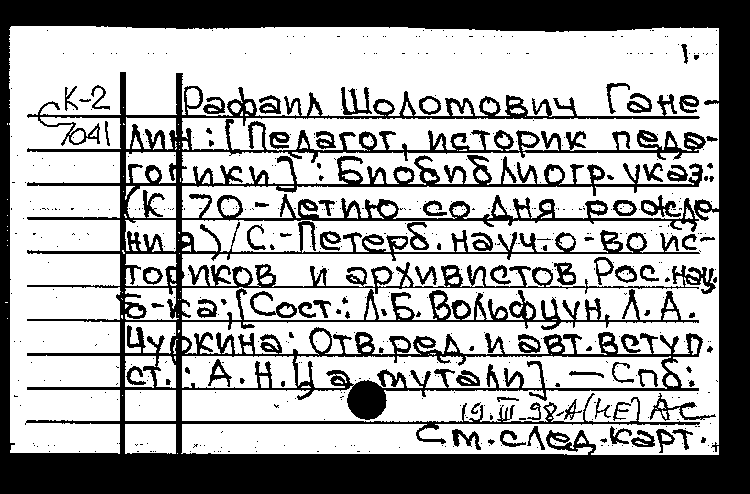 1.
К-2
С 7041
Рафаил Шоломович Гане-
лин: [Педагог, историк педа-
гогики]: Биобиблиогр. указ.:
(К 70-летию со дня рожде-
ния) / С.-Петерб. науч. о-во ис-
ториков и архивистов, Рос. нац.
б-ка; [Сост.: Л.Б. Вольфцун, Л.А.
Чуркина; Отв. ред. и авт. вступ.
ст.: А.Н. Цамутали]. — Спб:
19.III.98 А(НЕ) АС
См. след. карт.